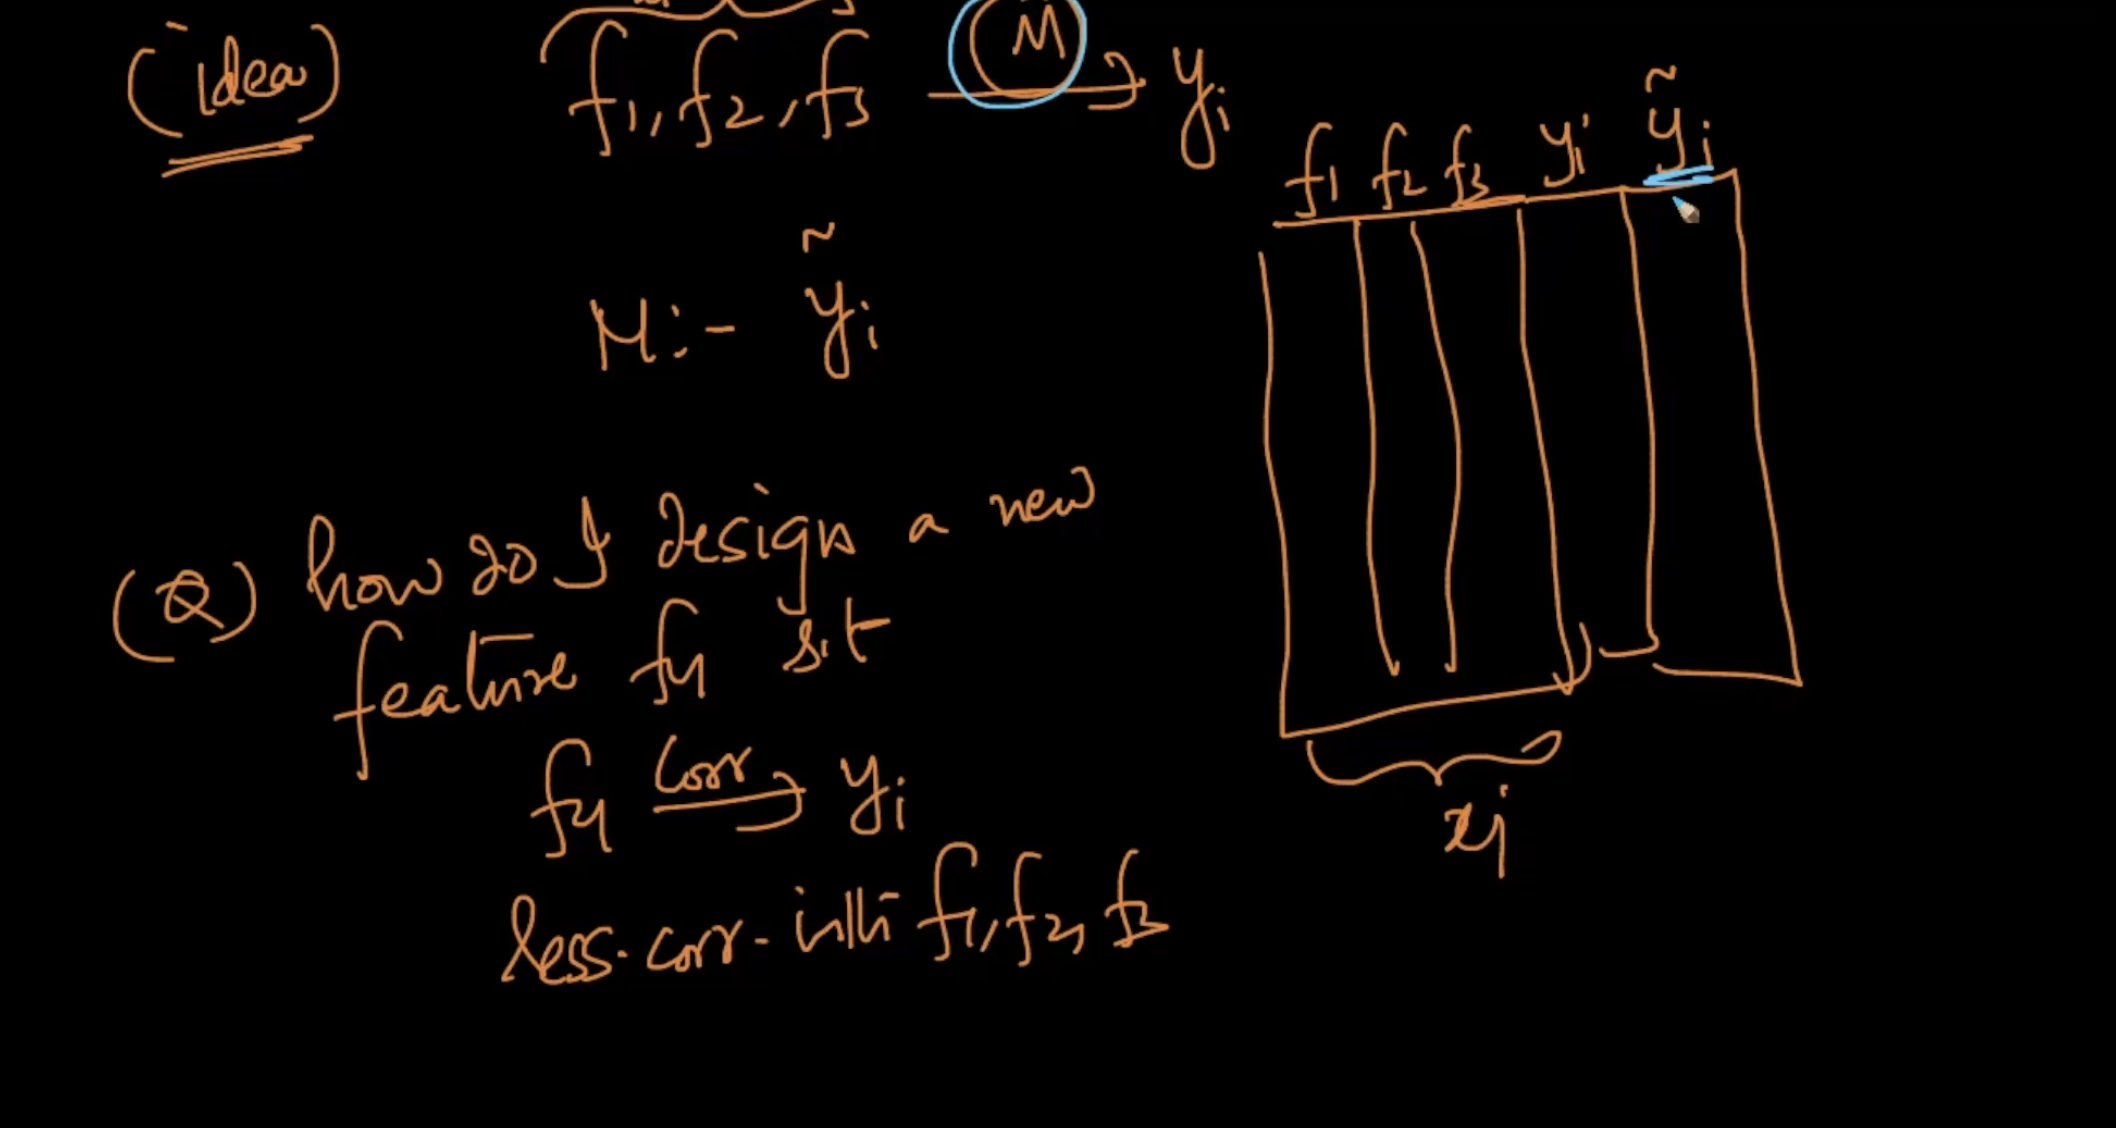 (idea)
f1, f2, f3 M → yi
f1 f2 f3 yi ỹi
M:- ỹi
(Q) how do I design a new
feature f4 s.t
f4 corr → yi
less. corr. with f1, f2, f3
xi